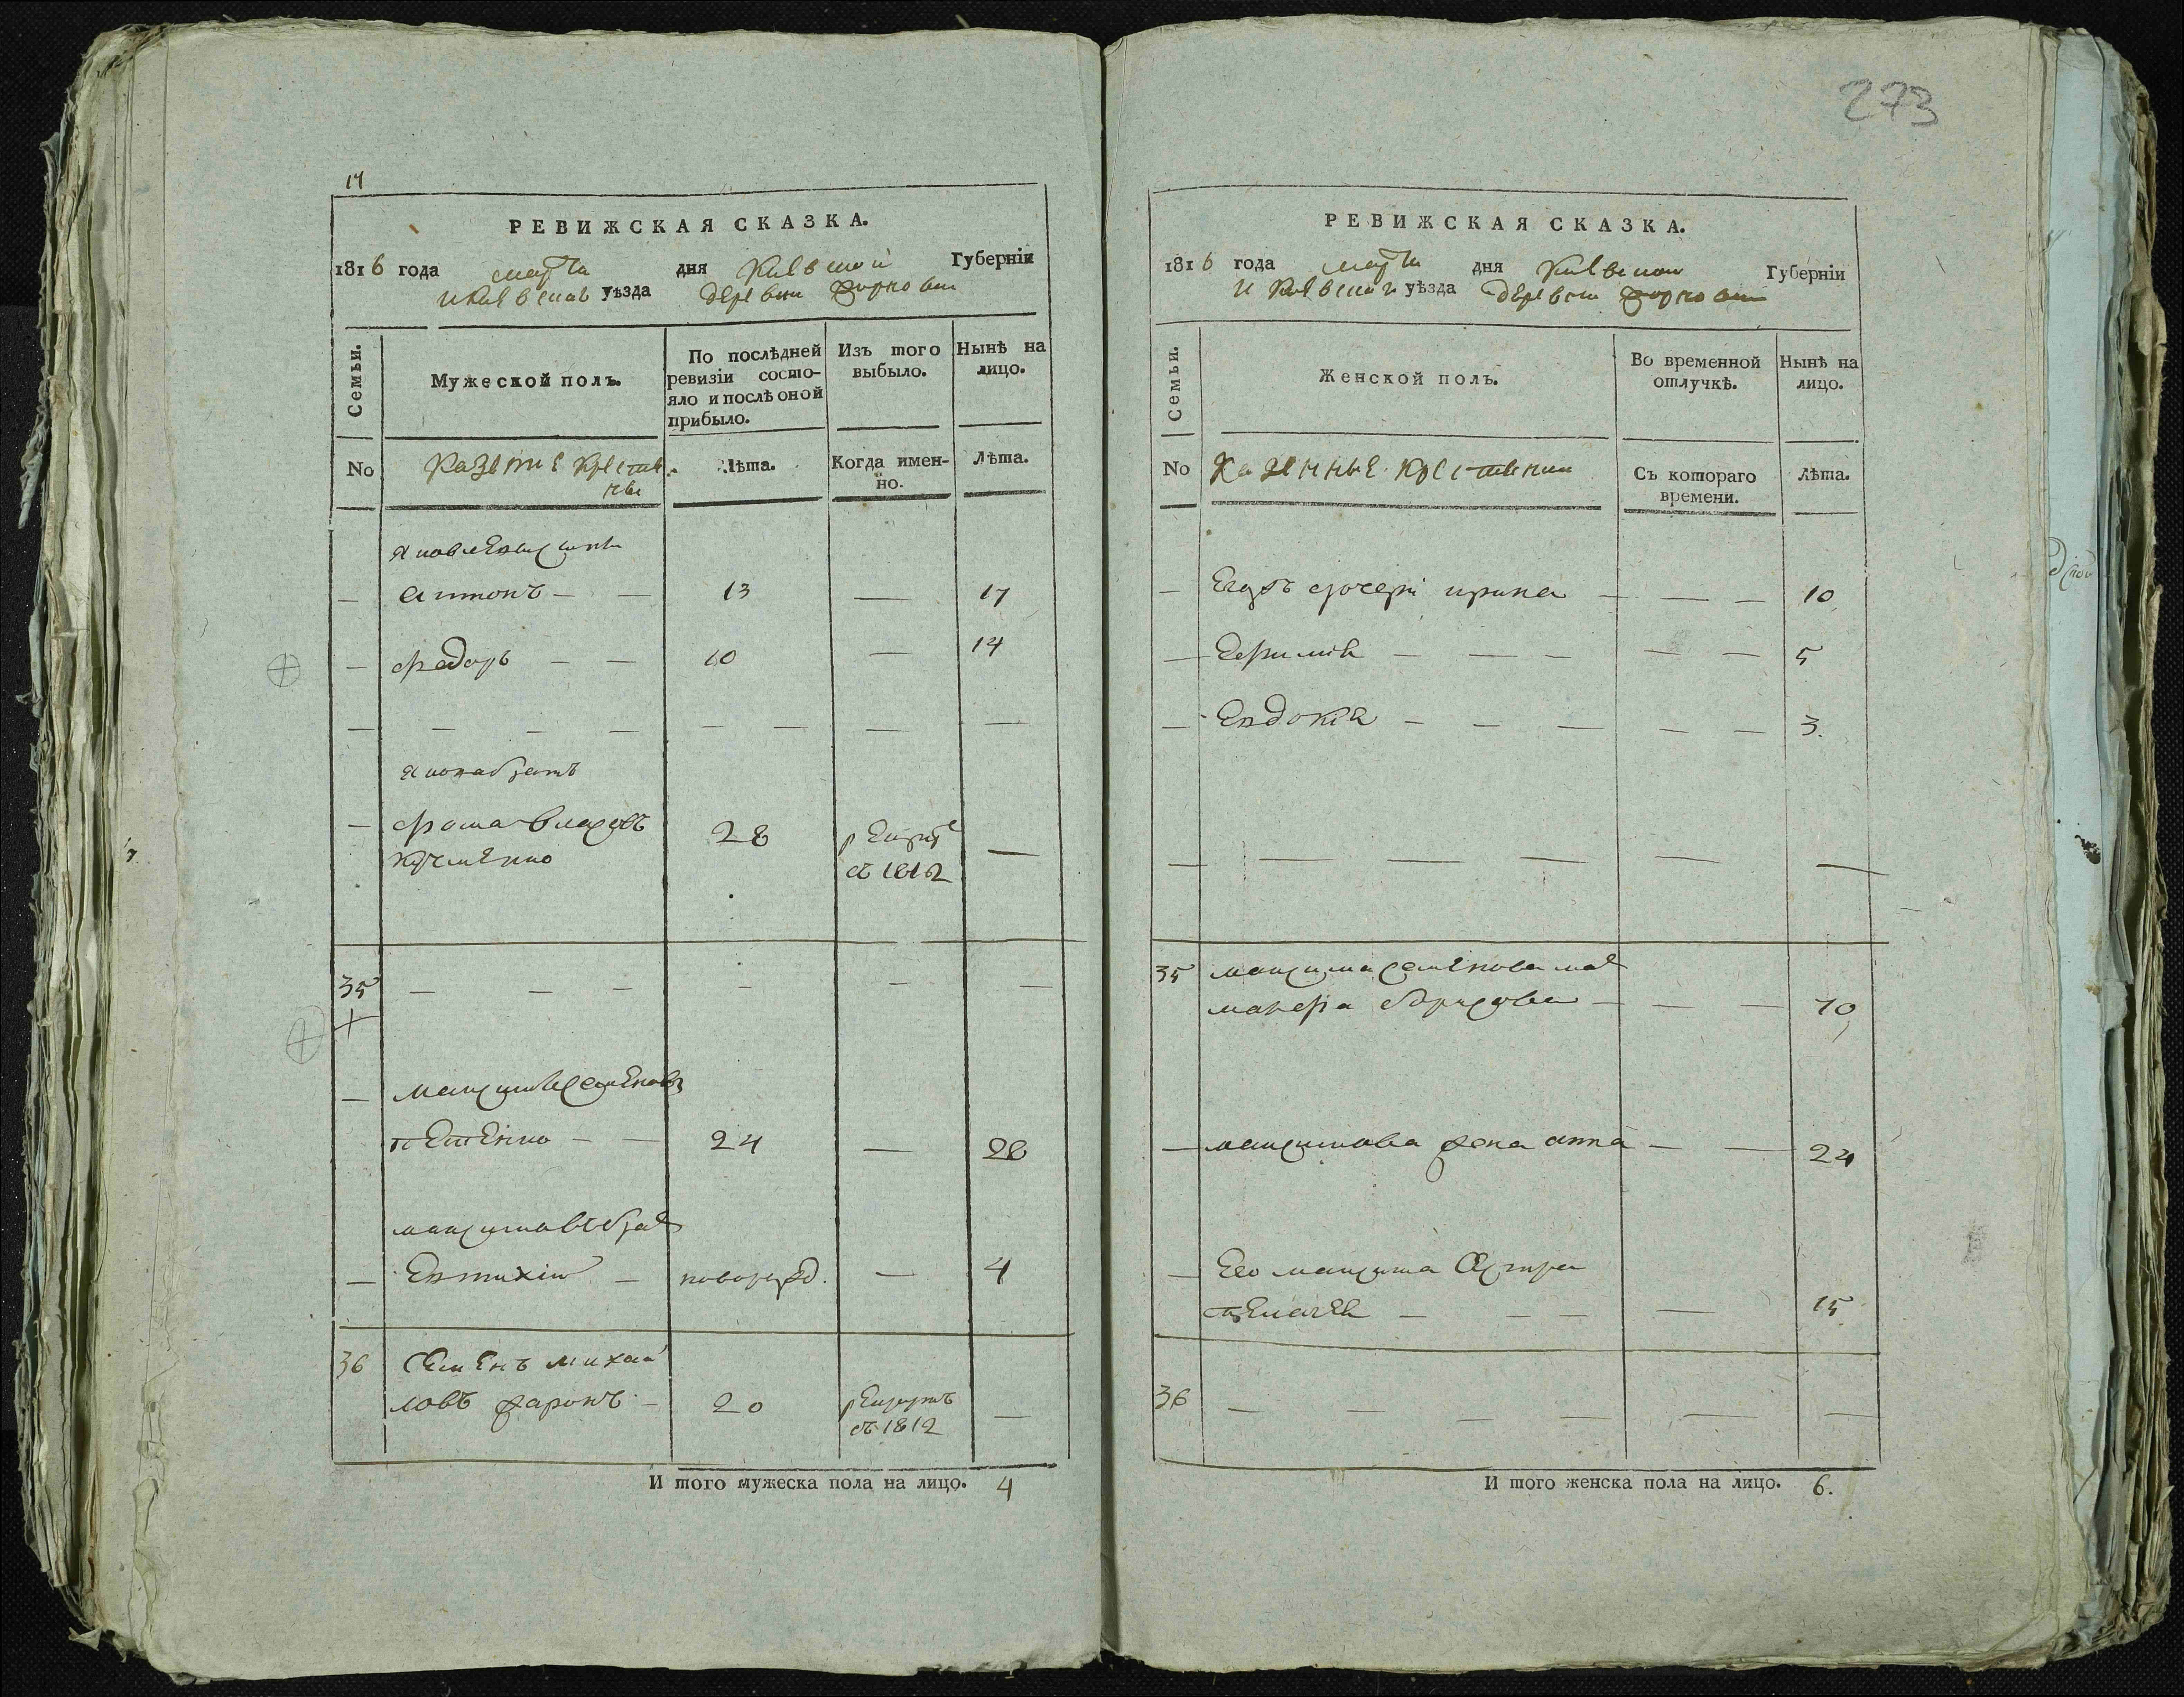 273
14
РЕВИЖСКАЯ СКАЗКА.
1816 года марта дня Киевской Губернїи
и Киевскаго уѣзда деревни
Семьи.
Мужеской полъ.
По послѣдней ревизїи состо-
яло и послѣ оной
прибыло.
Изъ того
выбыло.
Нынѣ на
лицо.
No
Казенные крестья
не
Лѣта.
Когда имен-
но.
Лѣта.
Антонъ — — 13 — 17
Федоръ — — 10 — 14
— — — — — — — —
Якова братъ
— Фома Власовъ 28 рекрут —
въ 1812
35 — — — — — —
— Максимъ Семеновъ
Петенко — — 24 — 28
Максимовъ брат
— Евтихій — новорожд. — 4
36 Семенъ Михай
ловъ Жаронъ — 20 рекрутъ —
въ 1812
И того мужеска пола на лицо. 4
РЕВИЖСКАЯ СКАЗКА.
1816 года марта дня Киевской Губернїи
и Киевскаго уѣзда деревни
Семьи.
Женской полъ.
Во временной
отлучкѣ.
Нынѣ на
лицо.
No
Казенные крестьянки
Съ котораго
времени.
Лѣта.
— дочери Ирина — — — 10
— Ефимія — — — — — 5
— Евдокія — — — — — 3.
— — — — — —
35 Максима Семенова мат
Марфа Борисова — — — 70
— Максимова жена Анна — — 24
— Его Максима сестра
Пелагея — — — — 15
36 — — — — — —
И того женска пола на лицо. 6.